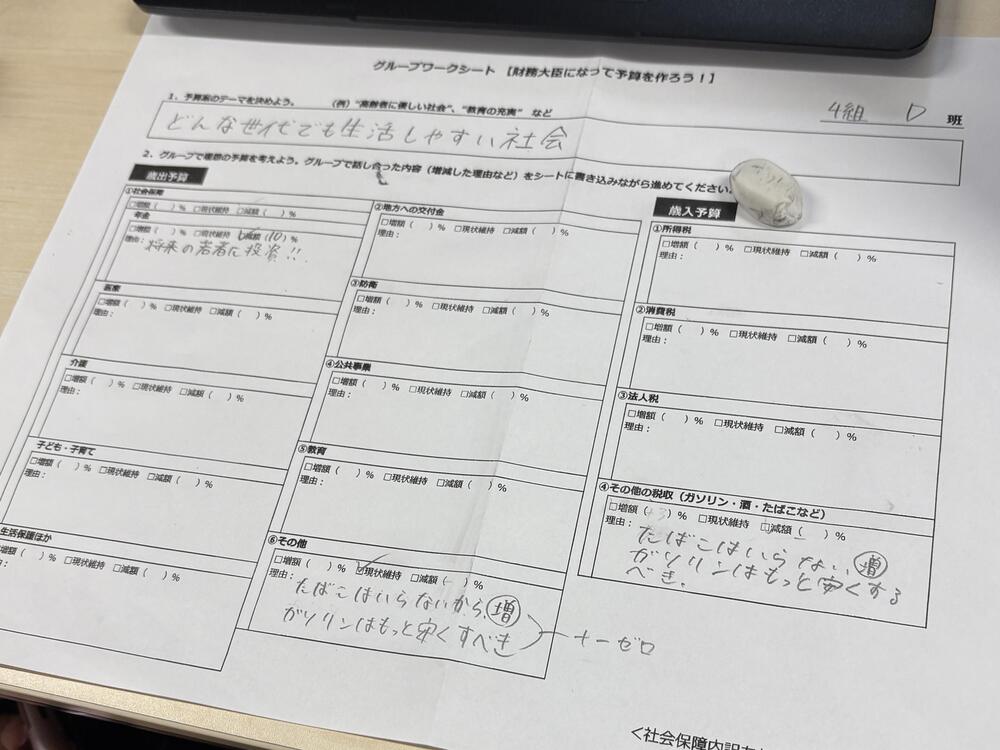 グループワークシート 【財務大臣になって予算を作ろう！】
1．予算案のテーマを決めよう。 （例）“高齢者に優しい社会”、“教育の充実” など
4組 D 班
どんな世代でも生活しやすい社会
2．グループで理想の予算を考えよう。グループで話し合った内容（増減した理由など）をシートに書き込みながら進めてください。
歳出予算
①社会保障
□増額（ ）% □現状維持 □減額（ ）%
年金
□増額（ ）% □現状維持 ☑減額（10）%
理由：将来の若者に投資!!
医療
□増額（ ）% □現状維持 □減額（ ）%
理由：
介護
□増額（ ）% □現状維持 □減額（ ）%
理由：
子ども・子育て
□増額（ ）% □現状維持 □減額（ ）%
理由：
生活保護ほか
□増額（ ）% □現状維持 □減額（ ）%
理由：
②地方への交付金
□増額（ ）% □現状維持 □減額（ ）%
理由：
③防衛
□増額（ ）% □現状維持 □減額（ ）%
理由：
④公共事業
□増額（ ）% □現状維持 □減額（ ）%
理由：
⑤教育
□増額（ ）% □現状維持 □減額（ ）%
理由：
⑥その他
□増額（ ）% ☑現状維持 □減額（ ）%
理由：たばこはいらないから、増
ガソリンはもっと安くすべき
＋－ゼロ
歳入予算
①所得税
□増額（ ）% □現状維持 □減額（ ）%
理由：
②消費税
□増額（ ）% □現状維持 □減額（ ）%
理由：
③法人税
□増額（ ）% □現状維持 □減額（ ）%
理由：
④その他の税収（ガソリン・酒・たばこなど）
□増額（ ）% □現状維持 □減額（ ）%
理由：たばこはいらない、増
ガソリンはもっと安くする
べき.
<社会保障内訳